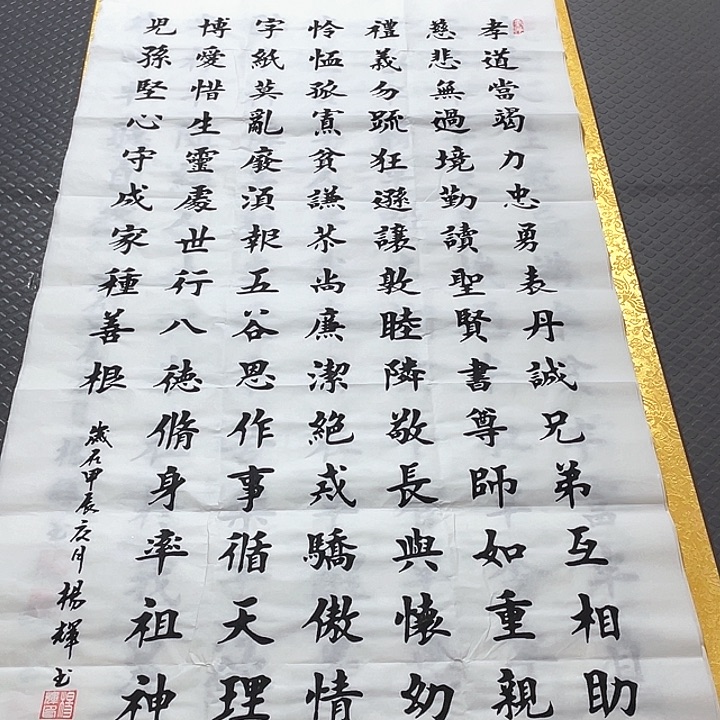 孝道當竭力忠勇表丹誠兄弟互相助
慈悲無過境勤讀聖賢書尊師如重親
禮義勿踈狂遜讓敦睦隣敬長與懷幼
怜恤孤寡貧謙恭尚廉潔絕戒驕傲情
字紙莫亂廢湏報五谷恩作事循天理
博愛惜生靈處世行八德脩身率祖神
児孫堅心守成家種善根
歲在甲辰月楊輝书